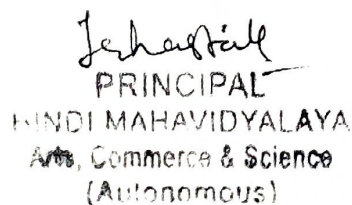 PRINCIPAL
HINDI MAHAVIDYALAYA
Arts, Commerce & Science
(Autonomous)